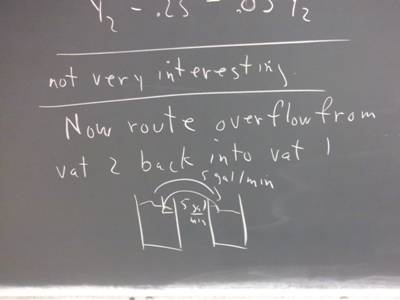 Y₂ = .25 - .05 Y₂
not very interesting.
Now route overflow from
vat 2 back into vat 1
5 gal/min
5 gal
min